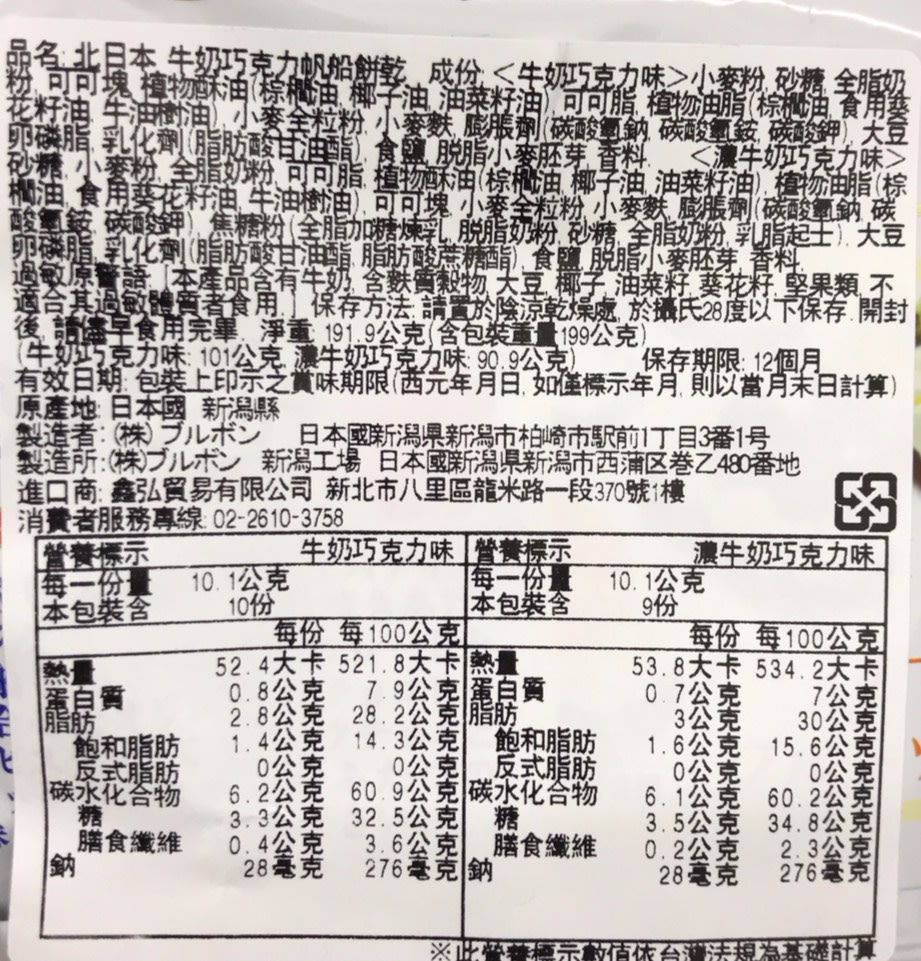 品名: 北日本 牛奶巧克力帆船餅乾 成份: <牛奶巧克力味>小麥粉, 砂糖, 全脂奶
粉, 可可塊, 植物酥油(棕櫚油, 椰子油, 油菜籽油), 可可脂, 植物油脂(棕櫚油, 食用葵
花籽油, 牛油樹油), 小麥全粒粉, 小麥麩, 膨脹劑(碳酸氫鈉, 碳酸氫銨, 碳酸鉀), 大豆
卵磷脂, 乳化劑(脂肪酸甘油酯), 食鹽, 脫脂小麥胚芽, 香料. <濃牛奶巧克力味>
砂糖, 小麥粉, 全脂奶粉, 可可脂, 植物酥油(棕櫚油, 椰子油, 油菜籽油), 植物油脂(棕
櫚油, 食用葵花籽油, 牛油樹油), 可可塊, 小麥全粒粉, 小麥麩, 膨脹劑(碳酸氫鈉, 碳
酸氫銨, 碳酸鉀), 焦糖粉(全脂加糖煉乳, 脫脂奶粉, 砂糖, 全脂奶粉, 乳脂起士), 大豆
卵磷脂, 乳化劑(脂肪酸甘油酯, 脂肪酸蔗糖酯), 食鹽, 脫脂小麥胚芽, 香料.
過敏原警語:「本產品含有牛奶, 含麩質穀物, 大豆, 椰子, 油菜籽, 葵花籽, 堅果類, 不
適合其過敏體質者食用.」 保存方法: 請置於陰涼乾燥處, 於攝氏28度以下保存. 開封
後, 請儘早食用完畢. 淨重: 191.9公克(含包裝重量199公克)
(牛奶巧克力味: 101公克, 濃牛奶巧克力味: 90.9公克) 保存期限: 12個月
有效日期: 包裝上印示之賞味期限(西元年月日, 如僅標示年月, 則以當月末日計算)
原產地: 日本國 新潟縣
製造者: (株)ブルボン 日本國新潟県新潟市柏崎市駅前1丁目3番1号
製造所: (株)ブルボン 新潟工場 日本國新潟県新潟市西蒲区巻乙480番地
進口商: 鑫弘貿易有限公司 新北市八里區龍米路一段370號1樓
消費者服務專線: 02-2610-3758
營養標示 牛奶巧克力味
每一份量 10.1公克
本包裝含 10份
每份 每100公克
熱量 52.4大卡 521.8大卡
蛋白質 0.8公克 7.9公克
脂肪 2.8公克 28.2公克
飽和脂肪 1.4公克 14.3公克
反式脂肪 0公克 0公克
碳水化合物 6.2公克 60.9公克
糖 3.3公克 32.5公克
膳食纖維 0.4公克 3.6公克
鈉 28毫克 276毫克
營養標示 濃牛奶巧克力味
每一份量 10.1公克
本包裝含 9份
每份 每100公克
熱量 53.8大卡 534.2大卡
蛋白質 0.7公克 7公克
脂肪 3公克 30公克
飽和脂肪 1.6公克 15.6公克
反式脂肪 0公克 0公克
碳水化合物 6.1公克 60.2公克
糖 3.5公克 34.8公克
膳食纖維 0.2公克 2.3公克
鈉 28毫克 276毫克
※此營養標示數值依台灣法規為基礎計算